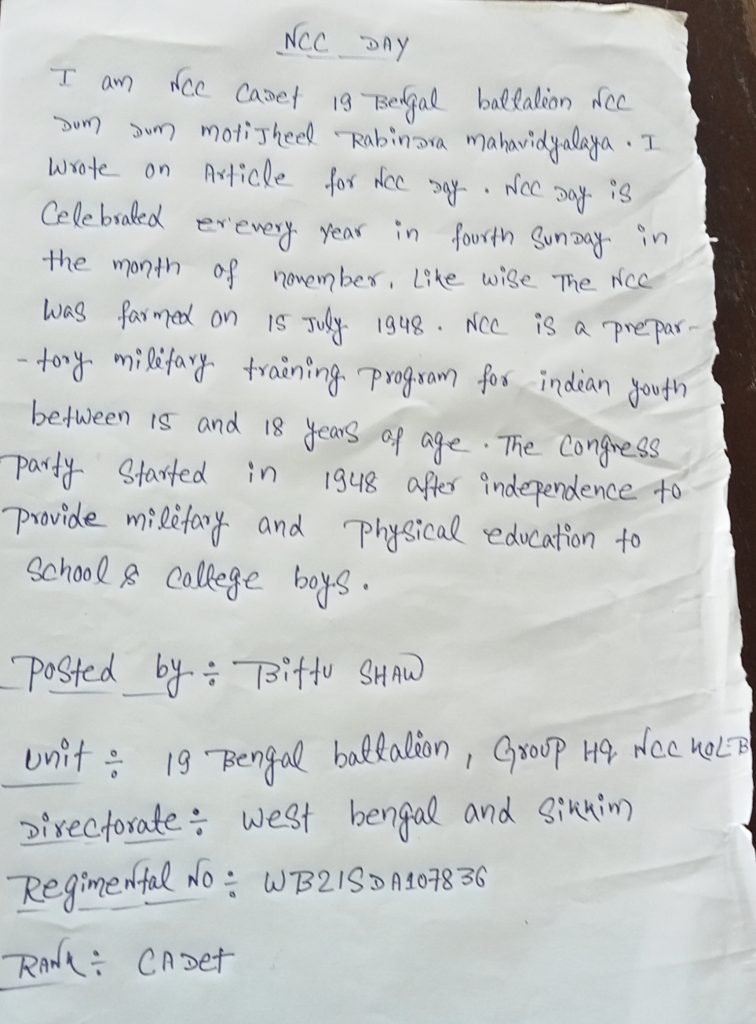 NCC DAY
I am NCC Cadet 19 Bengal battalion NCC
Dum Dum motiJheel Rabindra mahavidyalaya. I
Wrote on Article for NCC Day. NCC Day is
Celebrated er every year in fourth Sunday in
the month of november. Like wise The NCC
was farmed on 15 July 1948. NCC is a prepar-
-tory military training program for indian youth
between 15 and 18 years of age. The Congress
party Started in 1948 after independence to
provide military and physical education to
School & College boys.
Posted by ÷ Bittu SHAW
Unit ÷ 19 Bengal battalion, Group HQ NCC KOL-B
Directorate ÷ West bengal and Sikkim
Regimental No ÷ WB21SDA107836
RANK ÷ CADet